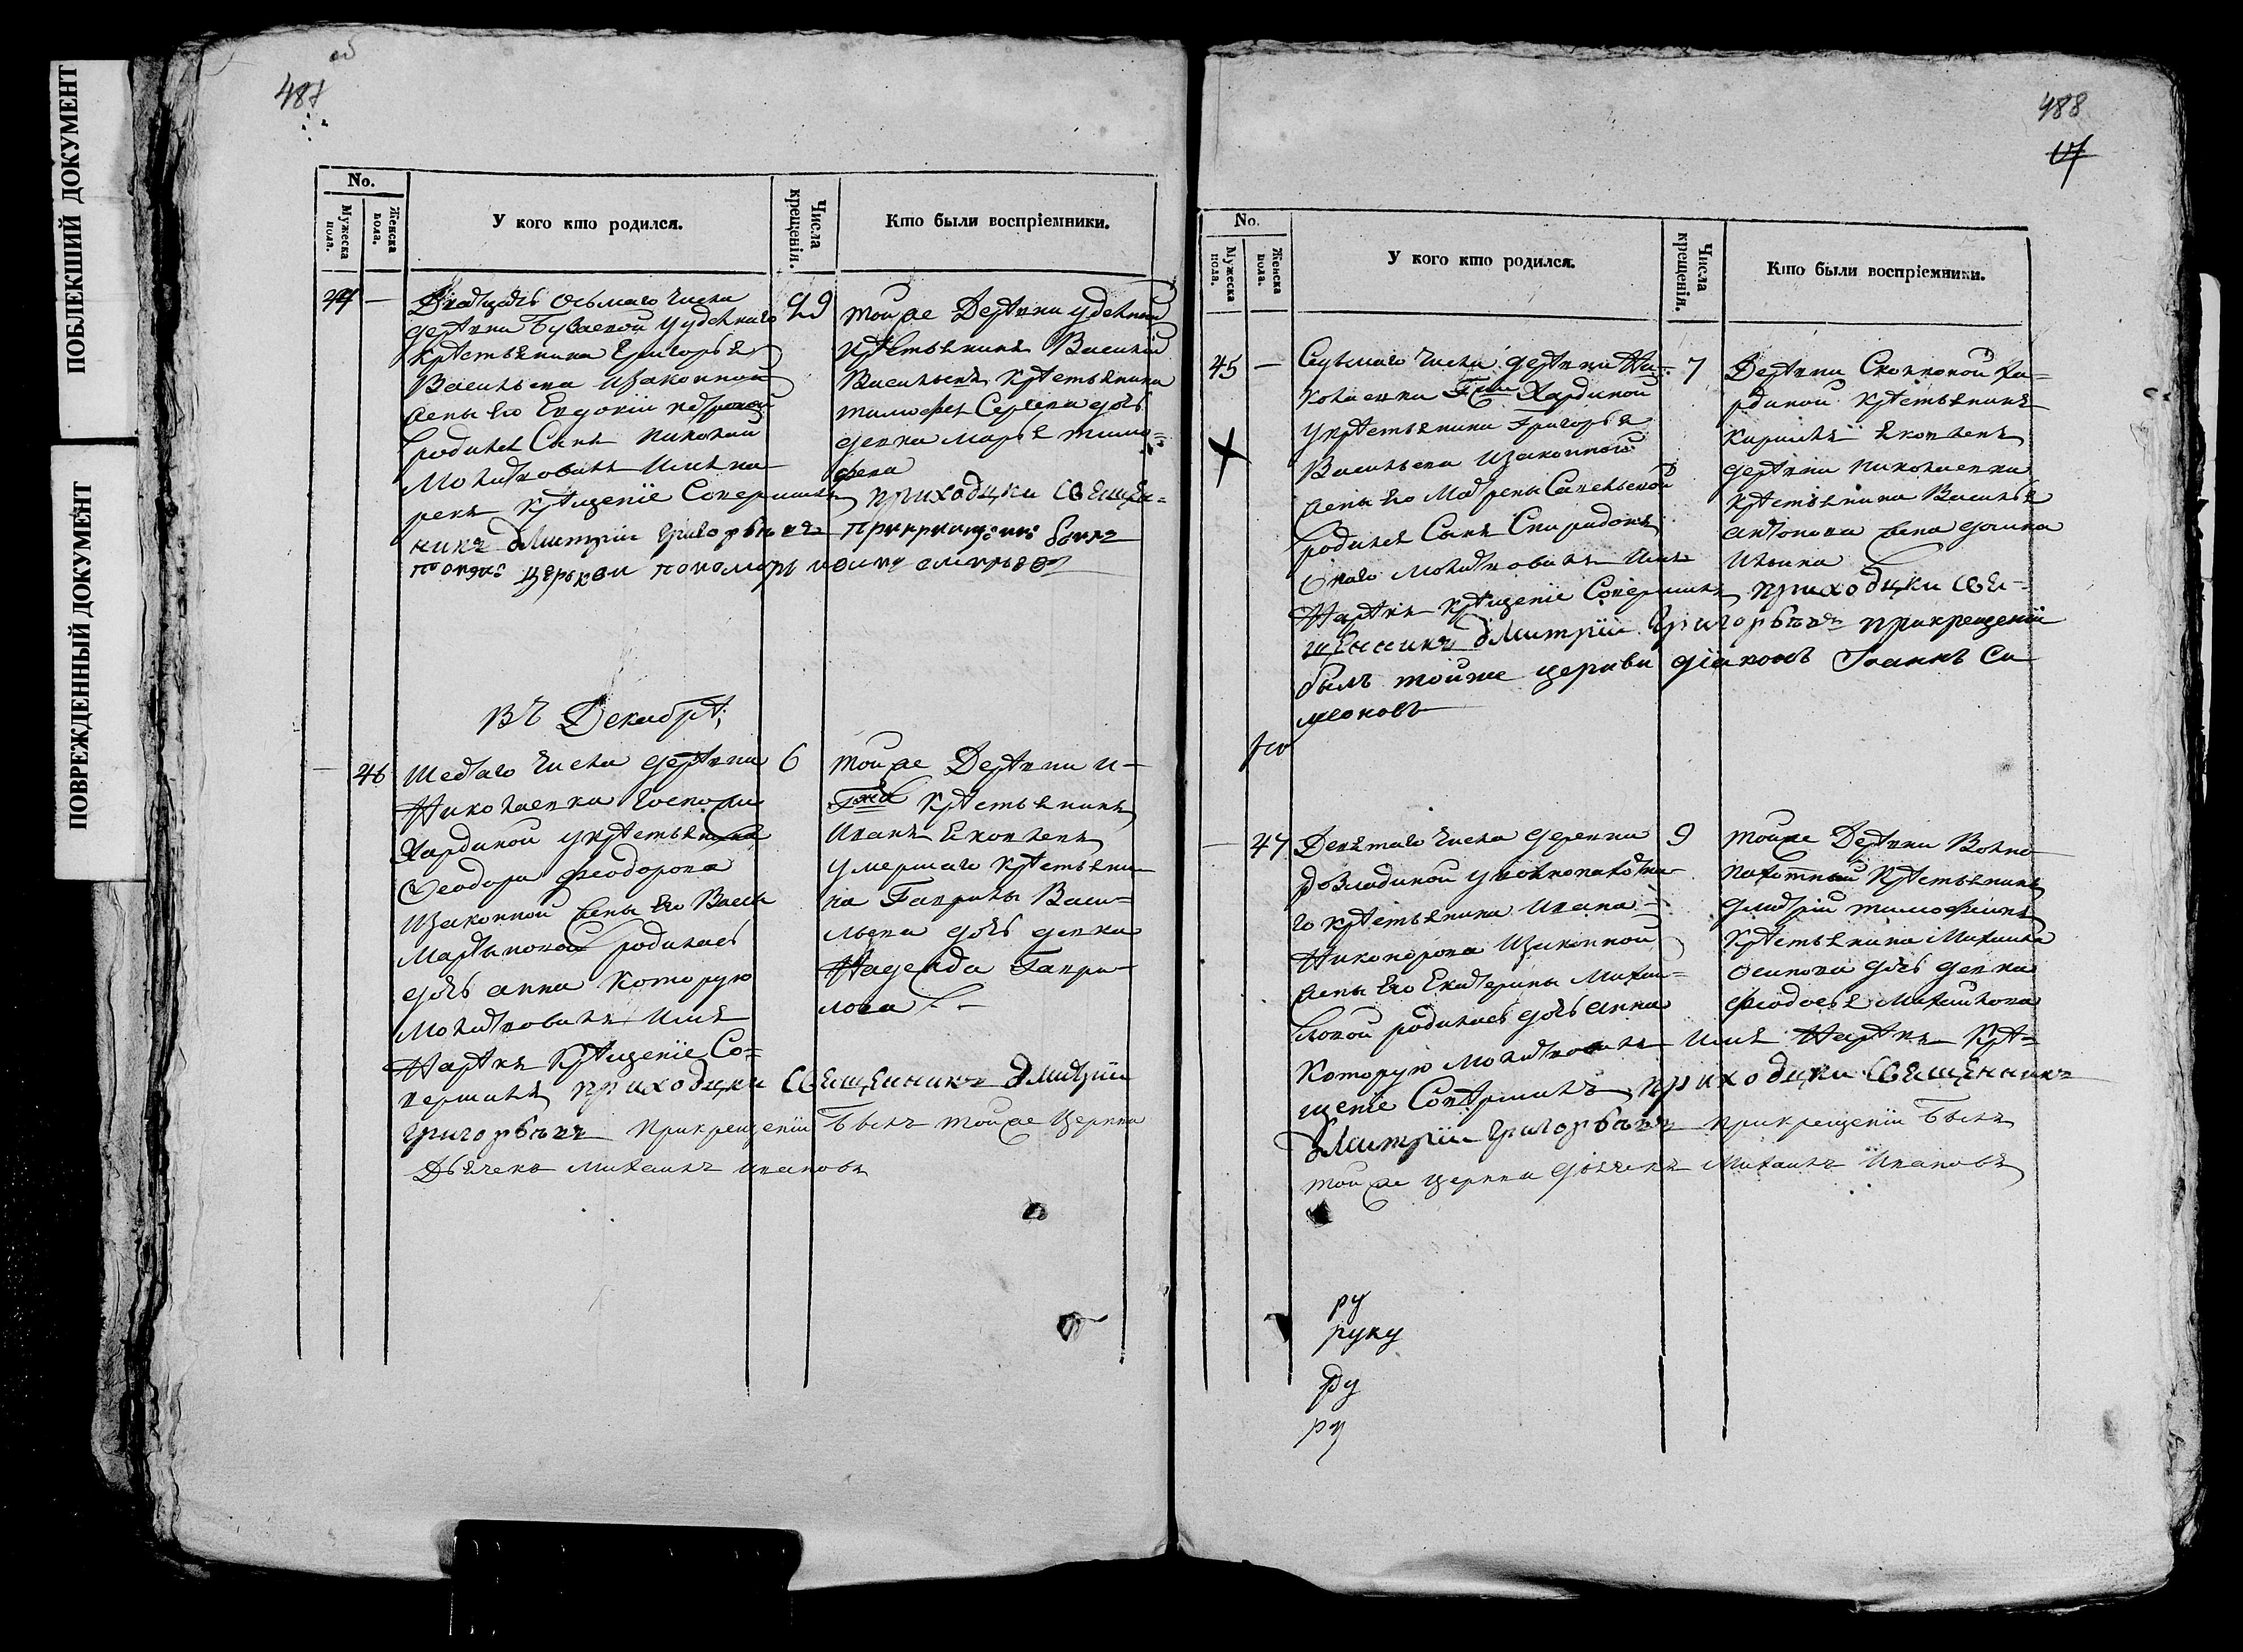 ПОБЛЕКШИЙ ДОКУМЕНТ
ПОВРЕЖДЕННЫЙ ДОКУМЕНТ
об
487
No.
Мужеска пола.
Женска пола.
У кого кто родился.
Числа крещенія.
Кто были воспріемники.
44 —
Двадцать осьмаго числа
деревни Буваевой удельнаго
крестьянина Григорья
Васильева Изаконной
жены его Евдокіи Петровой
родился Сынъ Николай
Молитвовалъ Имя на
рекъ крещеніе Совершилъ приходцки Свещен=
никъ дмитріи григорьевъ
церькви пономарь
29
тойже Деревни удельный
крестьянинъ Василій
Васильевъ крестьянина
тимофея Сергева дочь
девка марья тимо=
фева
Въ Декабре,
— 46
Шестаго числа деревни
Николаевки госпожи
Хардиной укрестьянина
Феодора феодорова
Изаконной жены его Васы
Мартыновой родилась
дочь анна которую
молитвовалъ имя
Нарекъ Крещеніе Со=
вершилъ приходцки Свещенникъ дмитріи
григорьевъ прикрещеніи былъ тойже Церкви
Дьячекъ михаилъ ивановъ
6
тойже Деревни и
Гжи крестьянинъ
Иванъ Яковлевъ
умершаго крестьяни
на Гаврилы Васи=
льева дочь девка
Надежда Гаври=
лова
488
No.
Мужеска пола.
Женска пола.
У кого кто родился.
Числа крещенія.
Кто были воспріемники.
45 —
Седьмаго числа деревни Ни=
колаевки Гжи Хардиной
укрестьянина Григорья
Васильева Изаконной
жены его Матрены Савельевой
родился Сынъ Спиридонъ
молитвовалъ Имя
Нарекъ крещеніе Совершилъ приходцки Све=
щенникъ дмитріи григорьевъ прикрещеніи
былъ тойже церкви діаконъ Іоаннъ Си
меоновъ
7
Деревни Ха=
рдиной крестьянинъ
кирилъ Яковлевъ
деревни николаевки
крестьянина Василья
антонова жена домна
Ильина
— 47
Девятаго числа деревни
у волнопахотна
го крестьянина Ивана
Никонорова Изаконной
жены его Екатерины Михаи=
ловой родилась дочь анна
Которую молитвовалъ Имя Нарекъ Кре=
щеніе Совершилъ приходцки Свещенникъ
дмитріи григорьевъ прикрещеніи былъ
тойже церкви дьячекъ Михаилъ Ивановъ
9
тойже Деревни Волно
пахотный крестьянинъ
дмитрій тимофеевъ
крестьянина Михаила
осипова дочь девка
феодосья михаилова
ру
руку
ру
ру